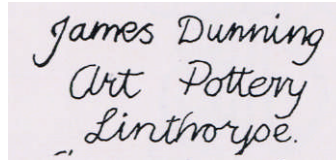 James Dunning
Art Pottery
Linthorpe.